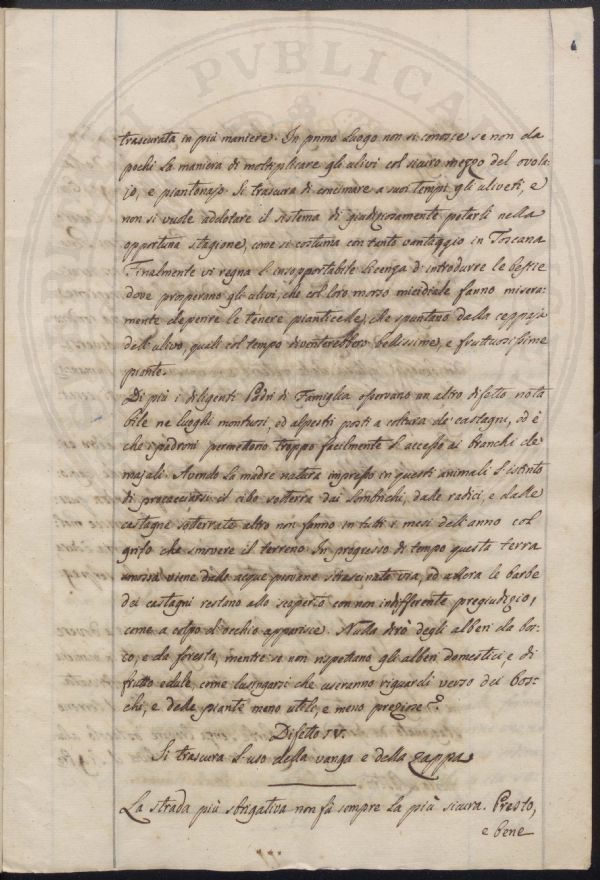 PUBLICA
trascurata in più maniere. In primo luogo non si conosce se non da
pochi la maniera di moltiplicare gli ulivi col sicuro mezzo del ovola-
jo, e piantonajo. Si trascura di concimare a suoi tempi gli uliveti, e
non si vuole addotare il sistema di giudiziosamente potarli nella
opportuna stagione, come si costuma con tanto vantaggio in Toscana
Finalmente vi regna l'insopportabile licenza d'introdurre le bestie
dove prosperano gli ulivi, che col loro morso micidiale fanno misera-
mente deperire le tenere pianticelle, che spuntano dalla ceppaja
dell'ulivo, quali col tempo diventerebbero bellissime, e fruttuosissime
piante.
Di più i diligenti Padri di Famiglia osservano un altro difetto nota
bile ne luoghi montuosi, ed alpestri posti a coltura de' castagni, ed è
che i padroni permettono troppo facilmente l'accesso ai branchi de
majali. Avendo la madre natura impresso in questi animali l'istinto
di procacciarsi il cibo sotterra dai lombrichi, dalle radici, e dalle
castagne sotterrate altro non fanno in tutti i mesi dell'anno col
grifo che smovere il terreno. In progresso di tempo questa terra
smossa viene dalle acque piovane strascinata via, ed allora le barbe
dei castagni restano allo scoperto con non indifferente pregiudizio,
come a colpo d'occhio apparisce. Nulla dirò degli alberi da bos-
co, e da foresta, mentre se non rispettano gli alberi domestici, e di
frutto edule, come lusingarsi che useranno riguardi verso dei bos-
chi, e delle piante meno utili, e meno preziose?
Difetto IV.
Si trascura l'uso della vanga e della zappa
La strada più sbrigativa non fù sempre la più sicura. Presto,
e bene